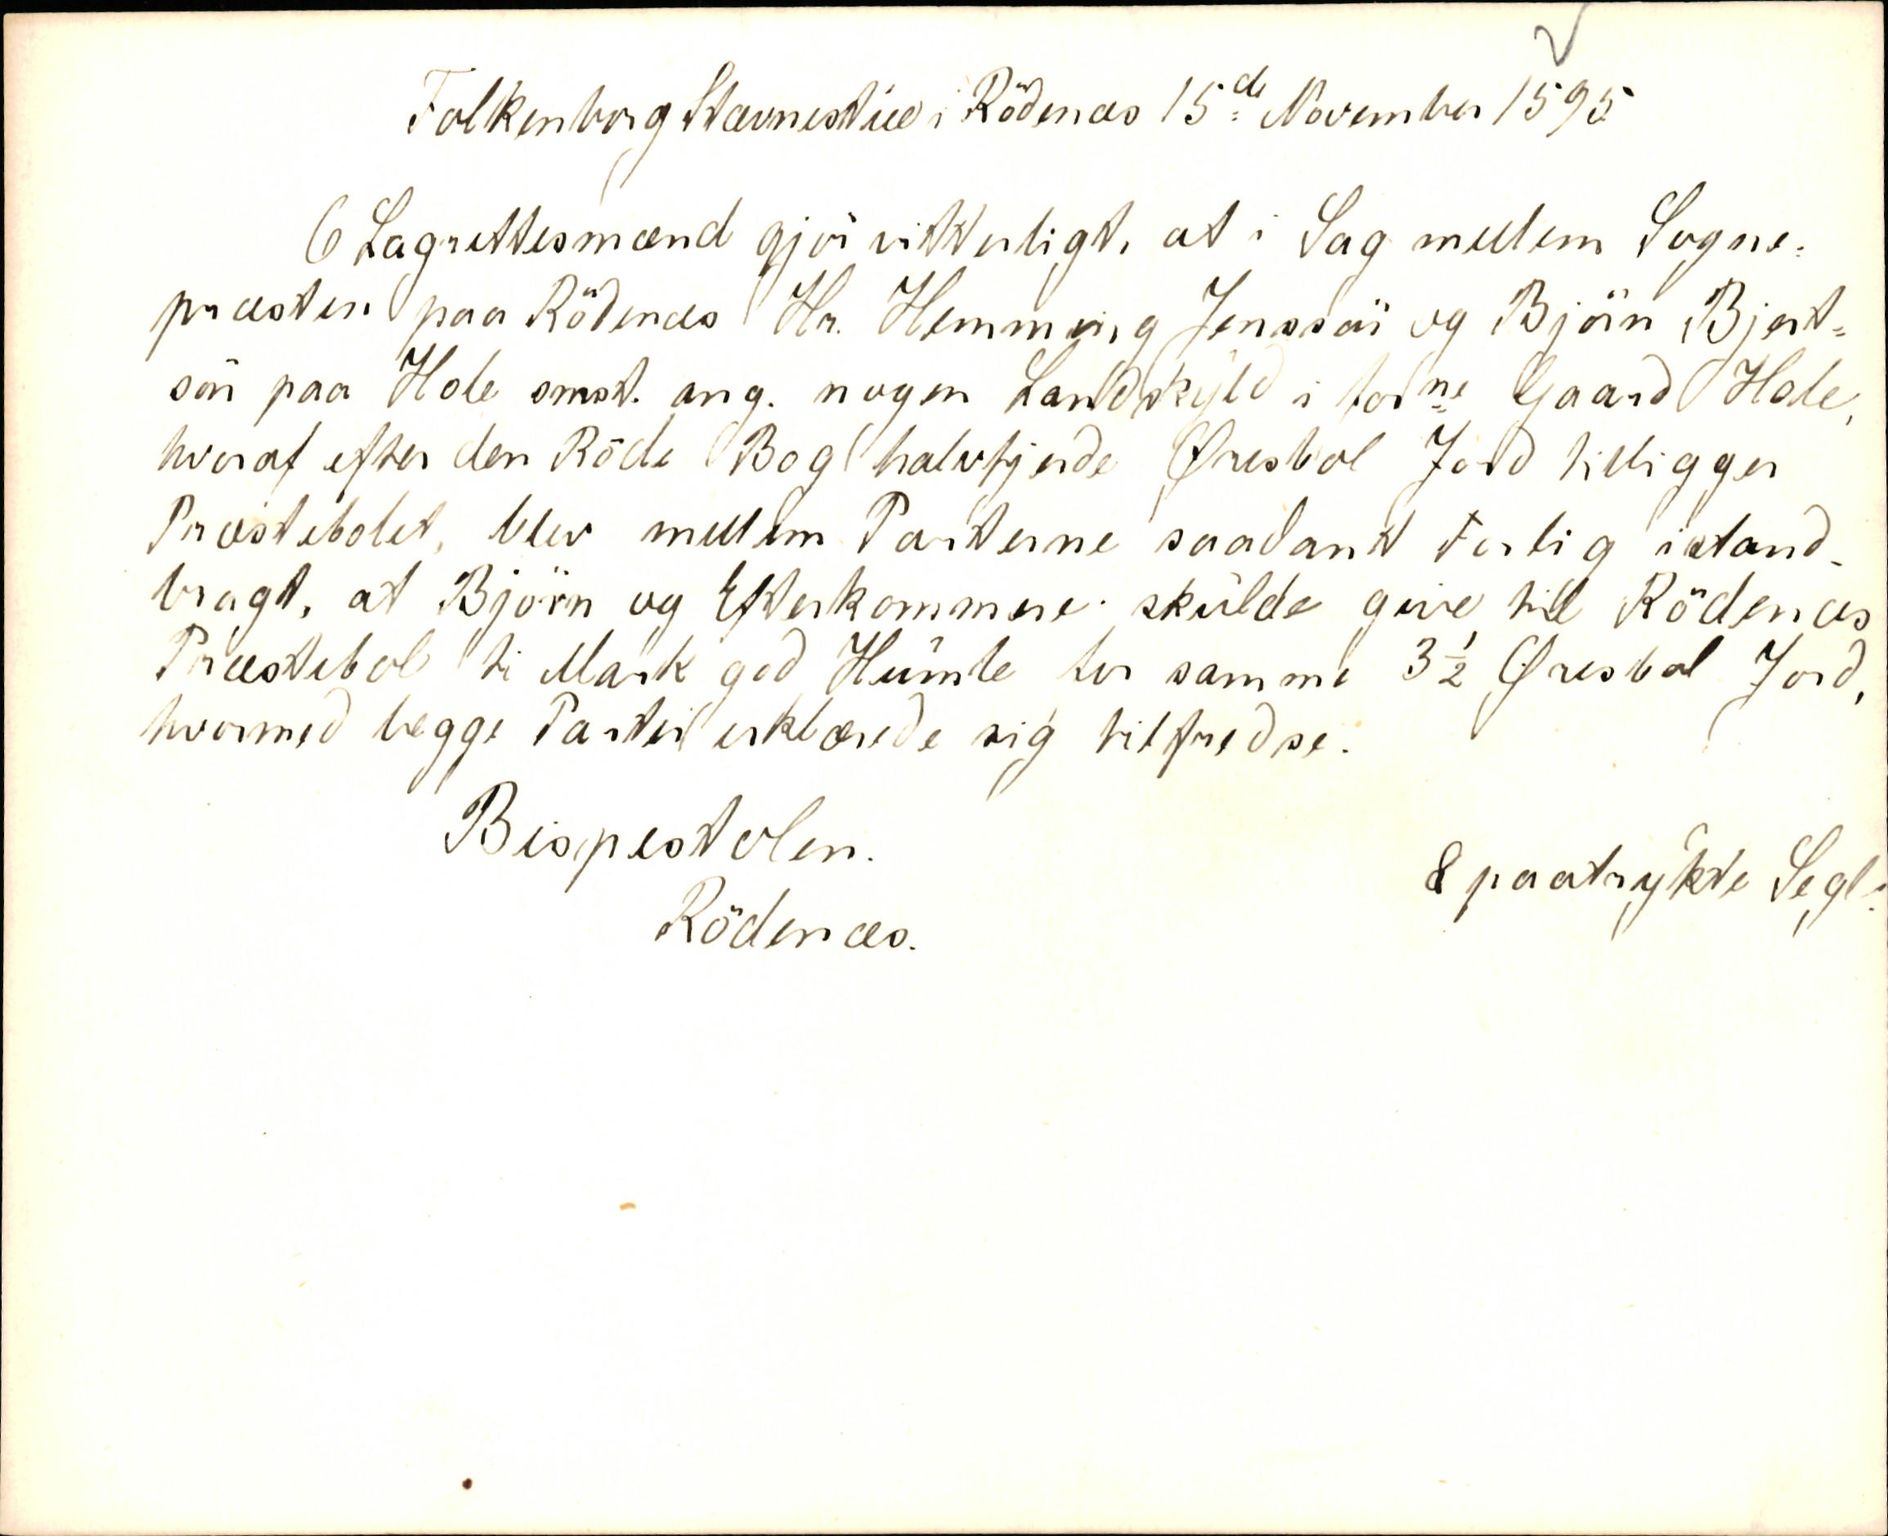 Folkenborg Stævnestue i Rödenæs 15de November 1595
6 Lagrettesmænd gjör vitterligt, at i Sag mellem Sogne-
præsten paa Rödenæs Hr. Hemming Jenssön og Björn Bjert-
sön paa Hole smst. ang. nogen Landskyld i forne Gaard Hole,
hvoraf efter den Röde Bog halvfjerde Øresbol Jord tilligger
Præstebolet, blev mellem Parterne saadant Forlig istand-
bragt, at Björn og Efterkommere skulde give till Rödenæs
Præstebol ti Mark god Humle for samme 3 1/2 Øresbol Jord,
hvormed begge Parter erklærede sig tilfredse.
Bispestolen.
8 paatrykte Segl.
Rödenæs.